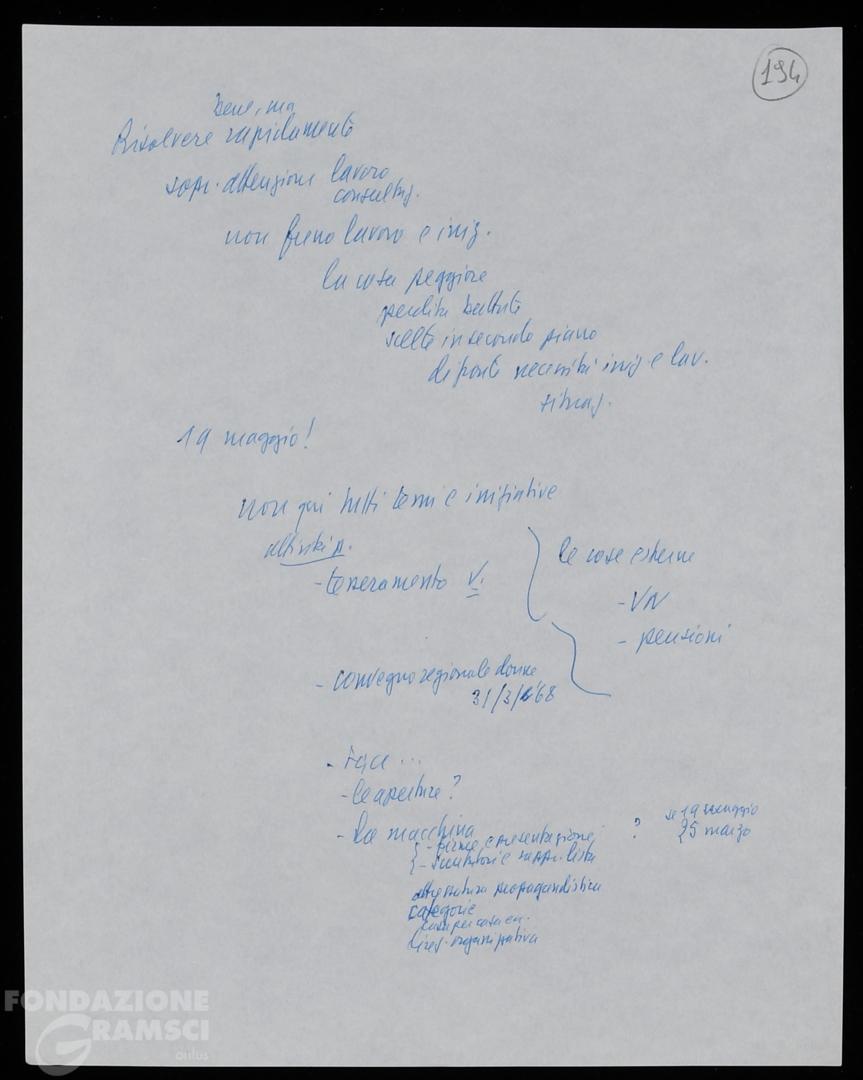 194
bene, ma
Risolvere rapidamente
sopr. attenzione lavoro
consultaz.
non freno lavoro e iniz.
la cosa peggiore
perdita battute
scelte in secondo piano
di fronte necessità iniz. e lav.
situaz.
19 maggio!
non qui tutti temi e iniziative
attività p.
- tesseramento V.
le cose esterne
- VN
- pensioni
- convegno regionale donne
31/3/68
- FGCI ...
- le aperture?
- la macchina
- firme e presentazione
- scrutatori e rappr. lista
?
se 19 maggio
25 marzo
attrezzatura propagandistica
categorie
casa per casa
direz. organizzativa
FONDAZIONE
GRAMSCI
onlus